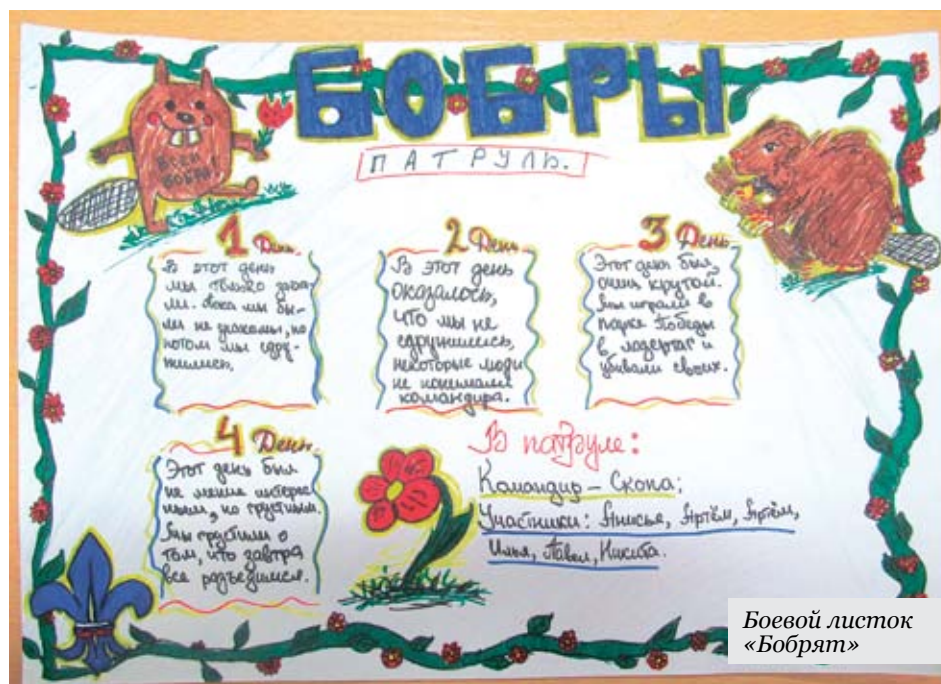 БОБРЫ
ПАТРУЛЬ.
ВСЕМ
БОБРА!
1 День.
В этот день
мы только
ми. Пока мы бы-
ли не знакомы, но
потом мы сдру-
жились.
2 День.
В этот день
оказалось,
что мы не
сдружились,
некоторые люди
не понимали
командира.
3 День.
Этот день был,
очень крутой.
Мы играли в
парке Победы
в лазертаг и
убивали своих.
4 День.
Этот день был
не менее интерес
ным, но грустным.
Мы грустим о
том, что завтра
все разъедимся.
В патруле:
Командир – Скопа;
Участники: Анисья, Артём, Артём,
Илья, Павел, Никита.
Боевой листок
«Бобрят»